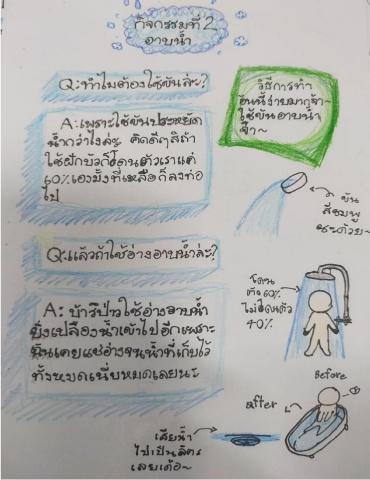 กิจกรรมที่ 2
อาบน้ำ
Q: ทำไมต้องใช้ขันล่ะ?
A: เพราะใช้ขันประหยัด
น้ำกว่าไงล่ะ คิดดีๆสิถ้า
ใช้ฝักบัวก็โดนตัวเราแค่
60% เองมั้งที่เหลือก็ลงท่อ
ไป
วิธีการทำ
อันนี้ง่ายมากจ้า~
ใช้ขันอาบน้ำ
จ้า~
ขัน
สีชมพู
นะด้วย~
Q: แล้วถ้าใช้อ่างอาบน้ำล่ะ?
A: บ้ารึป่าวใช้อ่างอาบน้ำ
ยิ่งเปลืองน้ำเข้าไปอีกเพราะ
ฉันเคยแช่อ่างจนน้ำที่เก็บไว้
ทั้งหมดเนี่ยหมดเลยนะ
โดน
ตัว 60%
ไม่โดนตัว
40%
Before
after
เสียน้ำ
ไปเป็นลิตร
เลยเด้อ~